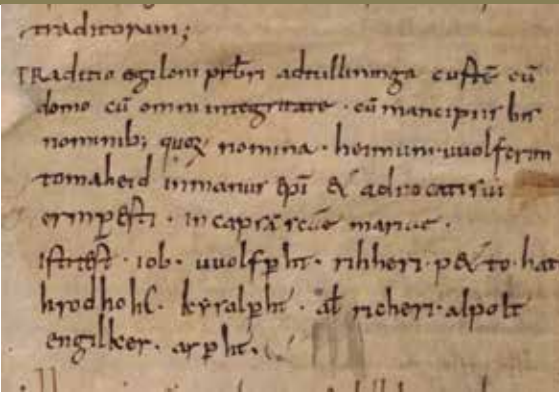 traditorum;
TRaditio egiloni prbri adtullininga custe cū
domo cū omni integritate · cū mancipiis his
nominib; quoꝝ nomina · heimuni · uuolferim
tomaheid inmanus epi & aduocati sui
· incapsā scē mariae ·
Isti test · iob · uuolfpht · rihheri · p&to · hat
hrodholf · keralpht · at richeri · alpolt
engilker · arpht ·